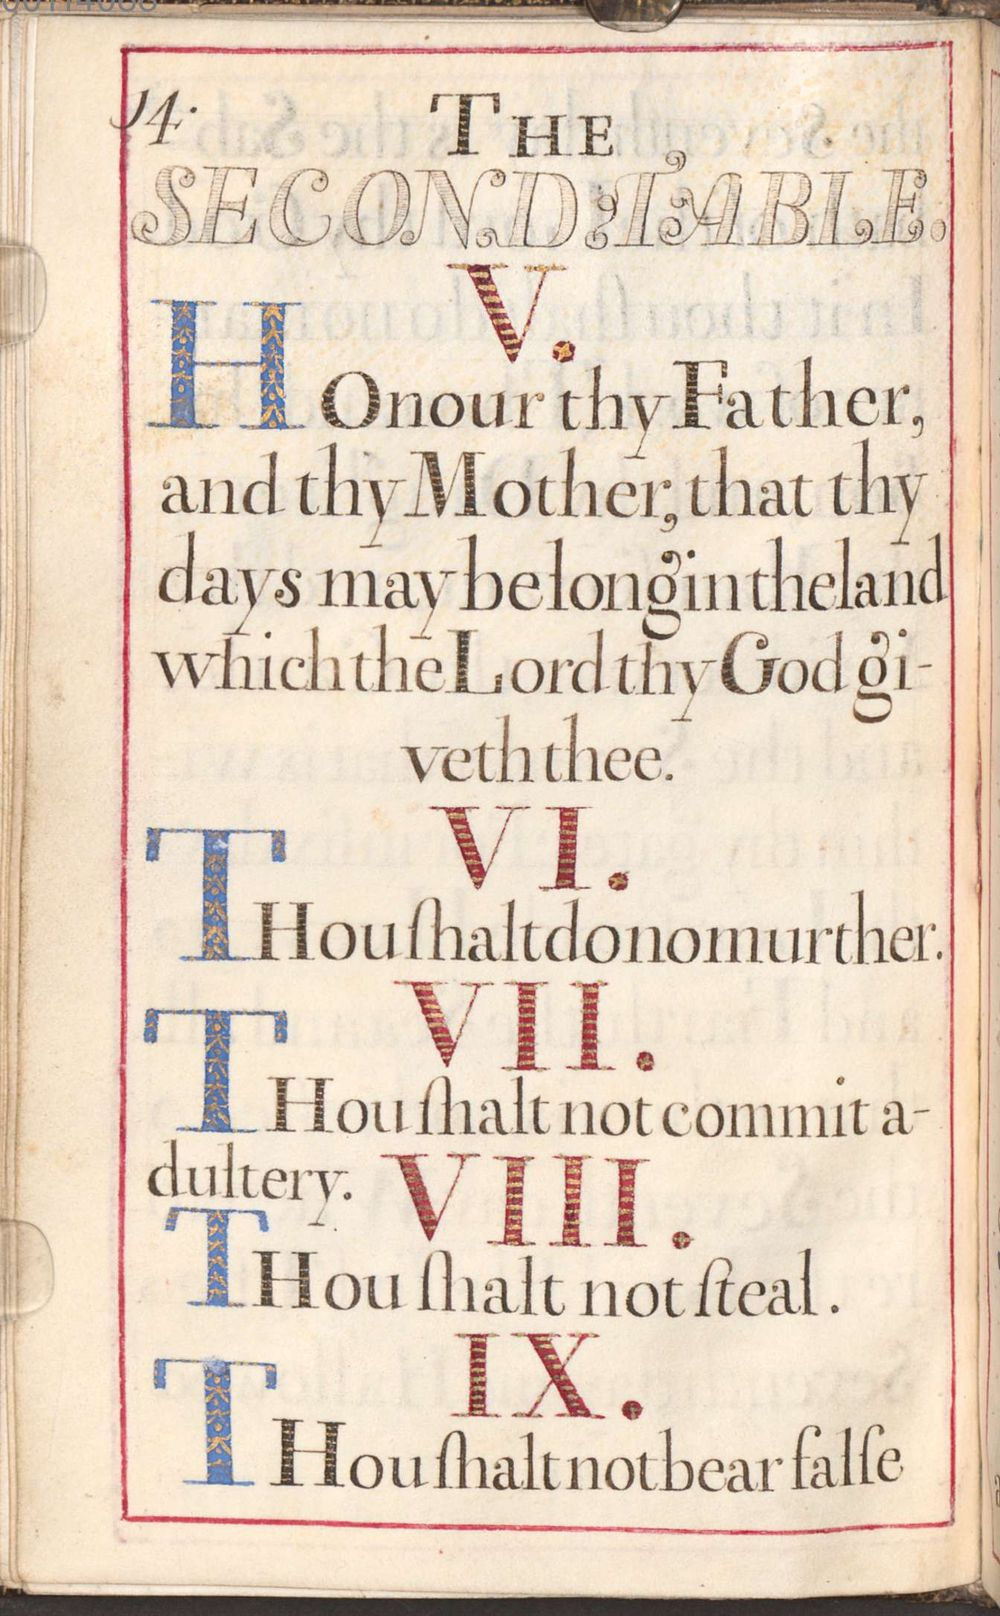 14.
THE
SECOND TABLE.
V.
HOnour thy Father,
and thy Mother, that thy
days may be long in the land
which the Lord thy God gi-
veth thee.
VI.
THou ſhalt do no murther.
VII.
THou ſhalt not commit a-
dultery. VIII.
THou ſhalt not ſteal.
IX.
THou ſhalt not bear falſe